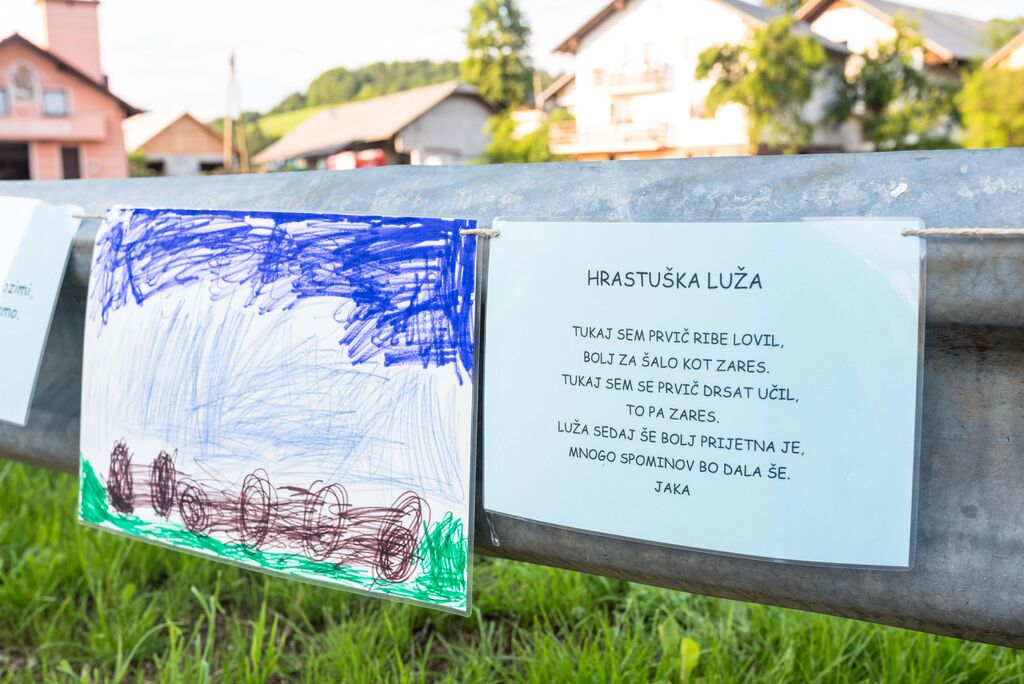 HRASTUŠKA LUŽA
TUKAJ SEM PRVIČ RIBE LOVIL,
BOLJ ZA ŠALO KOT ZARES.
TUKAJ SEM SE PRVIČ DRSAT UČIL,
TO PA ZARES.
LUŽA SEDAJ ŠE BOLJ PRIJETNA JE,
MNOGO SPOMINOV BO DALA ŠE.
JAKA